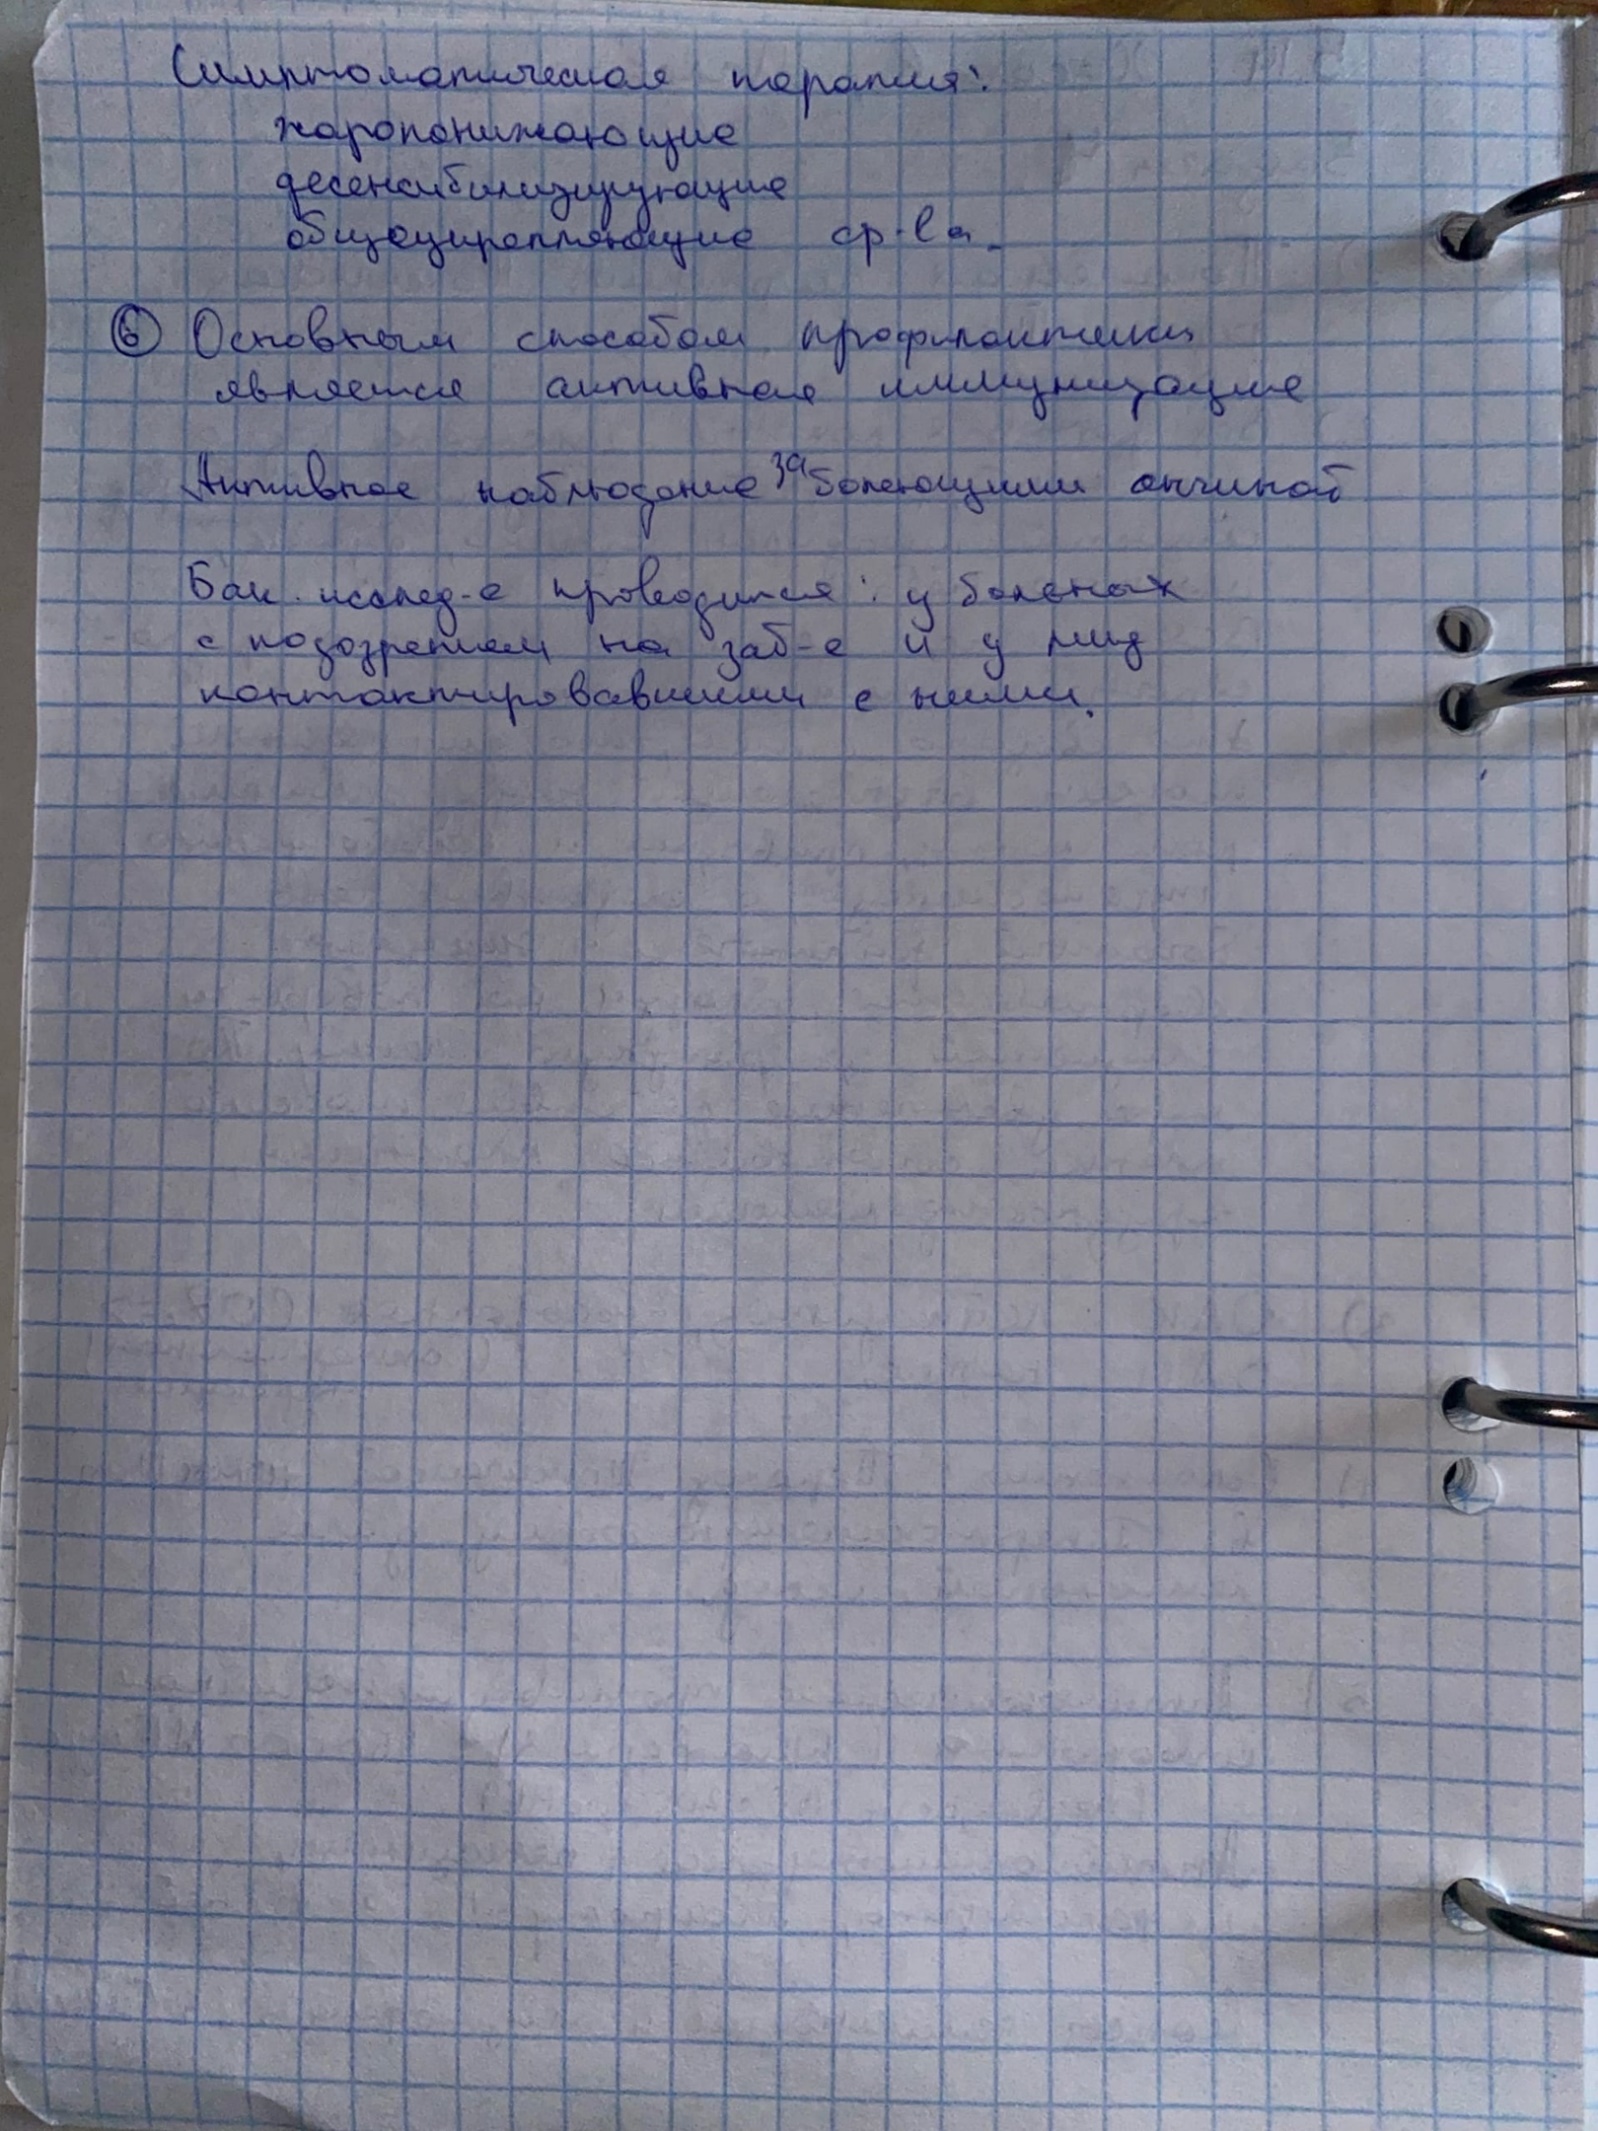 Симптоматическая терапия:
жаропонижающие
десенсибилизирующие
общеукрепляющие ср-ва.
⑥ Основным способом профилактики
является активная иммунизация
Активное наблюдение за болеющими ангиной
Бак. исслед-е проводится: у больных
с подозрением на заб-е и у лиц
контактировавшими с ними.